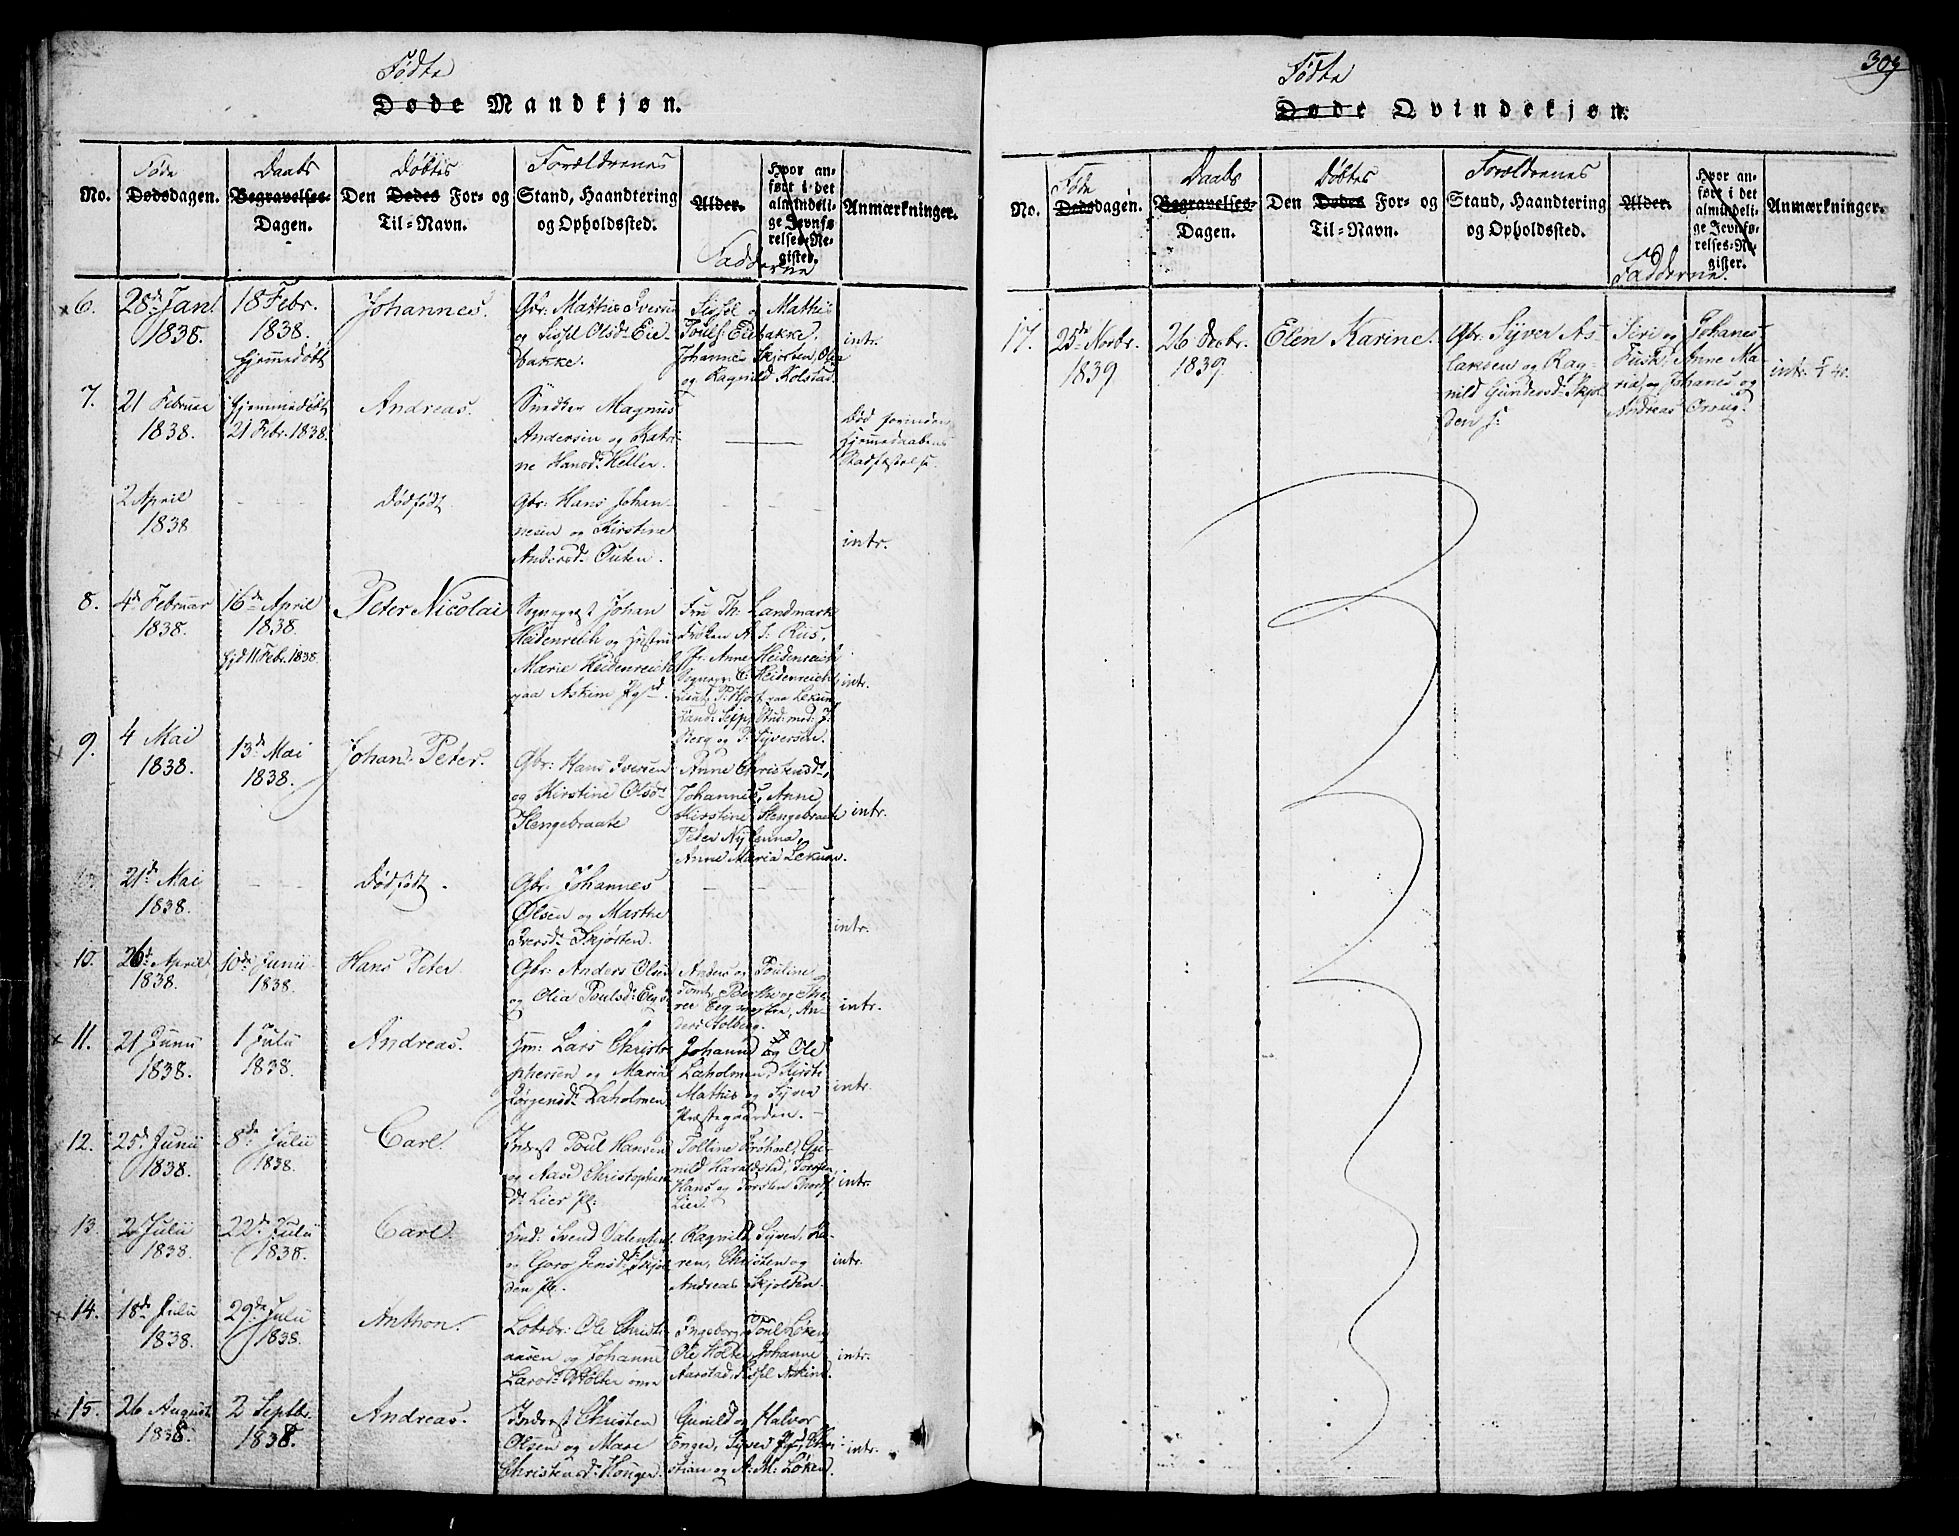 Fødte
Døde Mandkjøn.
No.
Føde
Dødsdagen.
Daabs
Begravelses-
Dagen.
Døbtes
Den Dødes For- og
Til-Navn.
Forældrenes
Stand, Haandtering
og Opholdssted.
Alder.
Hvor an-
ført i det
almindeli-
ge Jevnfø-
relses-Re-
gister.
Fadderne
Anmærkninger.
6.
28de Jan.
1838.
18 Febr.
1838.
Hjemmedøbt
Johannes.
Gbr. Mathis Iversen
og Sissel Olsdr. Eie-
bakke.
Sissel og Mathis
Pouls. Eiebakke,
Johannes Skjorten, Olia
og Ragnild Kolstad.
intr.
7.
21 Februar
1838.
Hjemmedøbt
21 Febr. 1838.
Andreas.
Smidker Magnus
Andersen og Katri-
ne Hansdr. Heller.
Død forinden
Hjemmedaabens
Stadfæstelse.
2 April
1838
Dødfødt.
Gbr: Hans Johan-
nesen og Kirstine
Andersdr. Outen.
intr.
8.
4de Februar
1838.
16de April
1838.
Hjd 11 Febr. 1838.
Peter Nicolai
Sognepræst Johan
Heidenreich og Hustru
Marie Heidenreich
paa Askim Pgd.
Fru Th: Landmark
Frøken A. J: Riis,
Jfr. Anne Heidenreich
Sognepr. C. Heidenreich
P. Hjort paa Lekum
Cand: Sepp, Stud: med: J.
Berg og P. Syversen.
intr.
9.
4 Mai
1838.
13de Mai
1838.
Johan Peter.
Gbr: Hans Iversen
og Kirstine Olsdr.
Stengebraate
Anne Christensdr.,
Johannes, Anne
Kirstine Stengebraate
Peder Nylenna,
Anne Maria Lekum.
intr.
21de Mai
1838.
Dødfødt.
Gbr: Johannes
Olsen og Marthe
Iversdr. Skjørten.
intr.
10.
26de April
1838.
10de Junii
1838.
Hans Peter
Gbr: Anders Olsen
og Olia Poulsdr: Eeg
Anders og Pouline
Tomt, Berthe og Tho-
rer Eeg vestre, An-
ders Solberg.
intr.
11.
21 Junii
1838.
1 Julii
1838.
Andreas.
Hm: Lars Christo-
phersen og Maria
Jørgensdr. Laholmen
Johanne og Ole
Laholmen, Kirsti
Mathis og Syver
Præstegaarden.
intr.
12.
25de Junii
1838.
8de Julii
1838.
Carl.
Inderst Poul Hansen
og Aase Christophers-
dr. Lier Pl:
Tolline Frøhoel, Gu-
nild Haraldstad, Torsten,
Hans og Torsten
Lier.
intr.
13.
2 Julii
1838.
22de Julii
1838.
Carl.
Hmd: Svend Valentins.
og Goro Jensdr: Skjol-
den Pl.
Ragnild, Syver, Ka-
ren, Christen og
Andreas Skjolden.
intr.
14.
18de Julii
1838.
29de Julii
1838.
Anthon.
Lobsbr: Ole Christi-
ansen og Johanne
Larsdr: Holter
Ingeborg, Poul Løken,
Ole Holter, Johanne
Aarstad, Sissel Askim.
intr.
15.
26 August
1838.
2 Septbr.
1838.
Andreas.
Inderst Christen
Olsen og Mare
Christensdr. Honger.
Gunild og Halvor
Enger, Syver Pgd, Chri-
stian og A: M: Løken.
intr.
309
Fødte
Døde Qvindekjøn.
No.
Føde
Dødsdagen.
Daabs
Begravelses-
Dagen.
Døbtes
Den Dødes For- og
Til-Navn.
Forældrenes
Stand, Haandtering
og Opholdssted.
Alder.
Hvor an-
ført i det
almindeli-
ge Jevnfø-
relses-Re-
gister.
Fadderne.
Anmærkninger.
17.
25de Novbr.
1839
26 Decbr.
1839
Elen Karine.
Gbr. Syver As-
laksen og Rag-
nild Gundersdr. Skjol-
den
Siri og Johanes
Fusk, Anne Ma-
ria, og Johanes og
Andreas
intr.